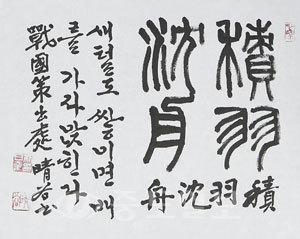 積羽
沈舟
積羽沈舟
새털도 쌓이면 배
를 가라앉힌다
戰國策出處 晴